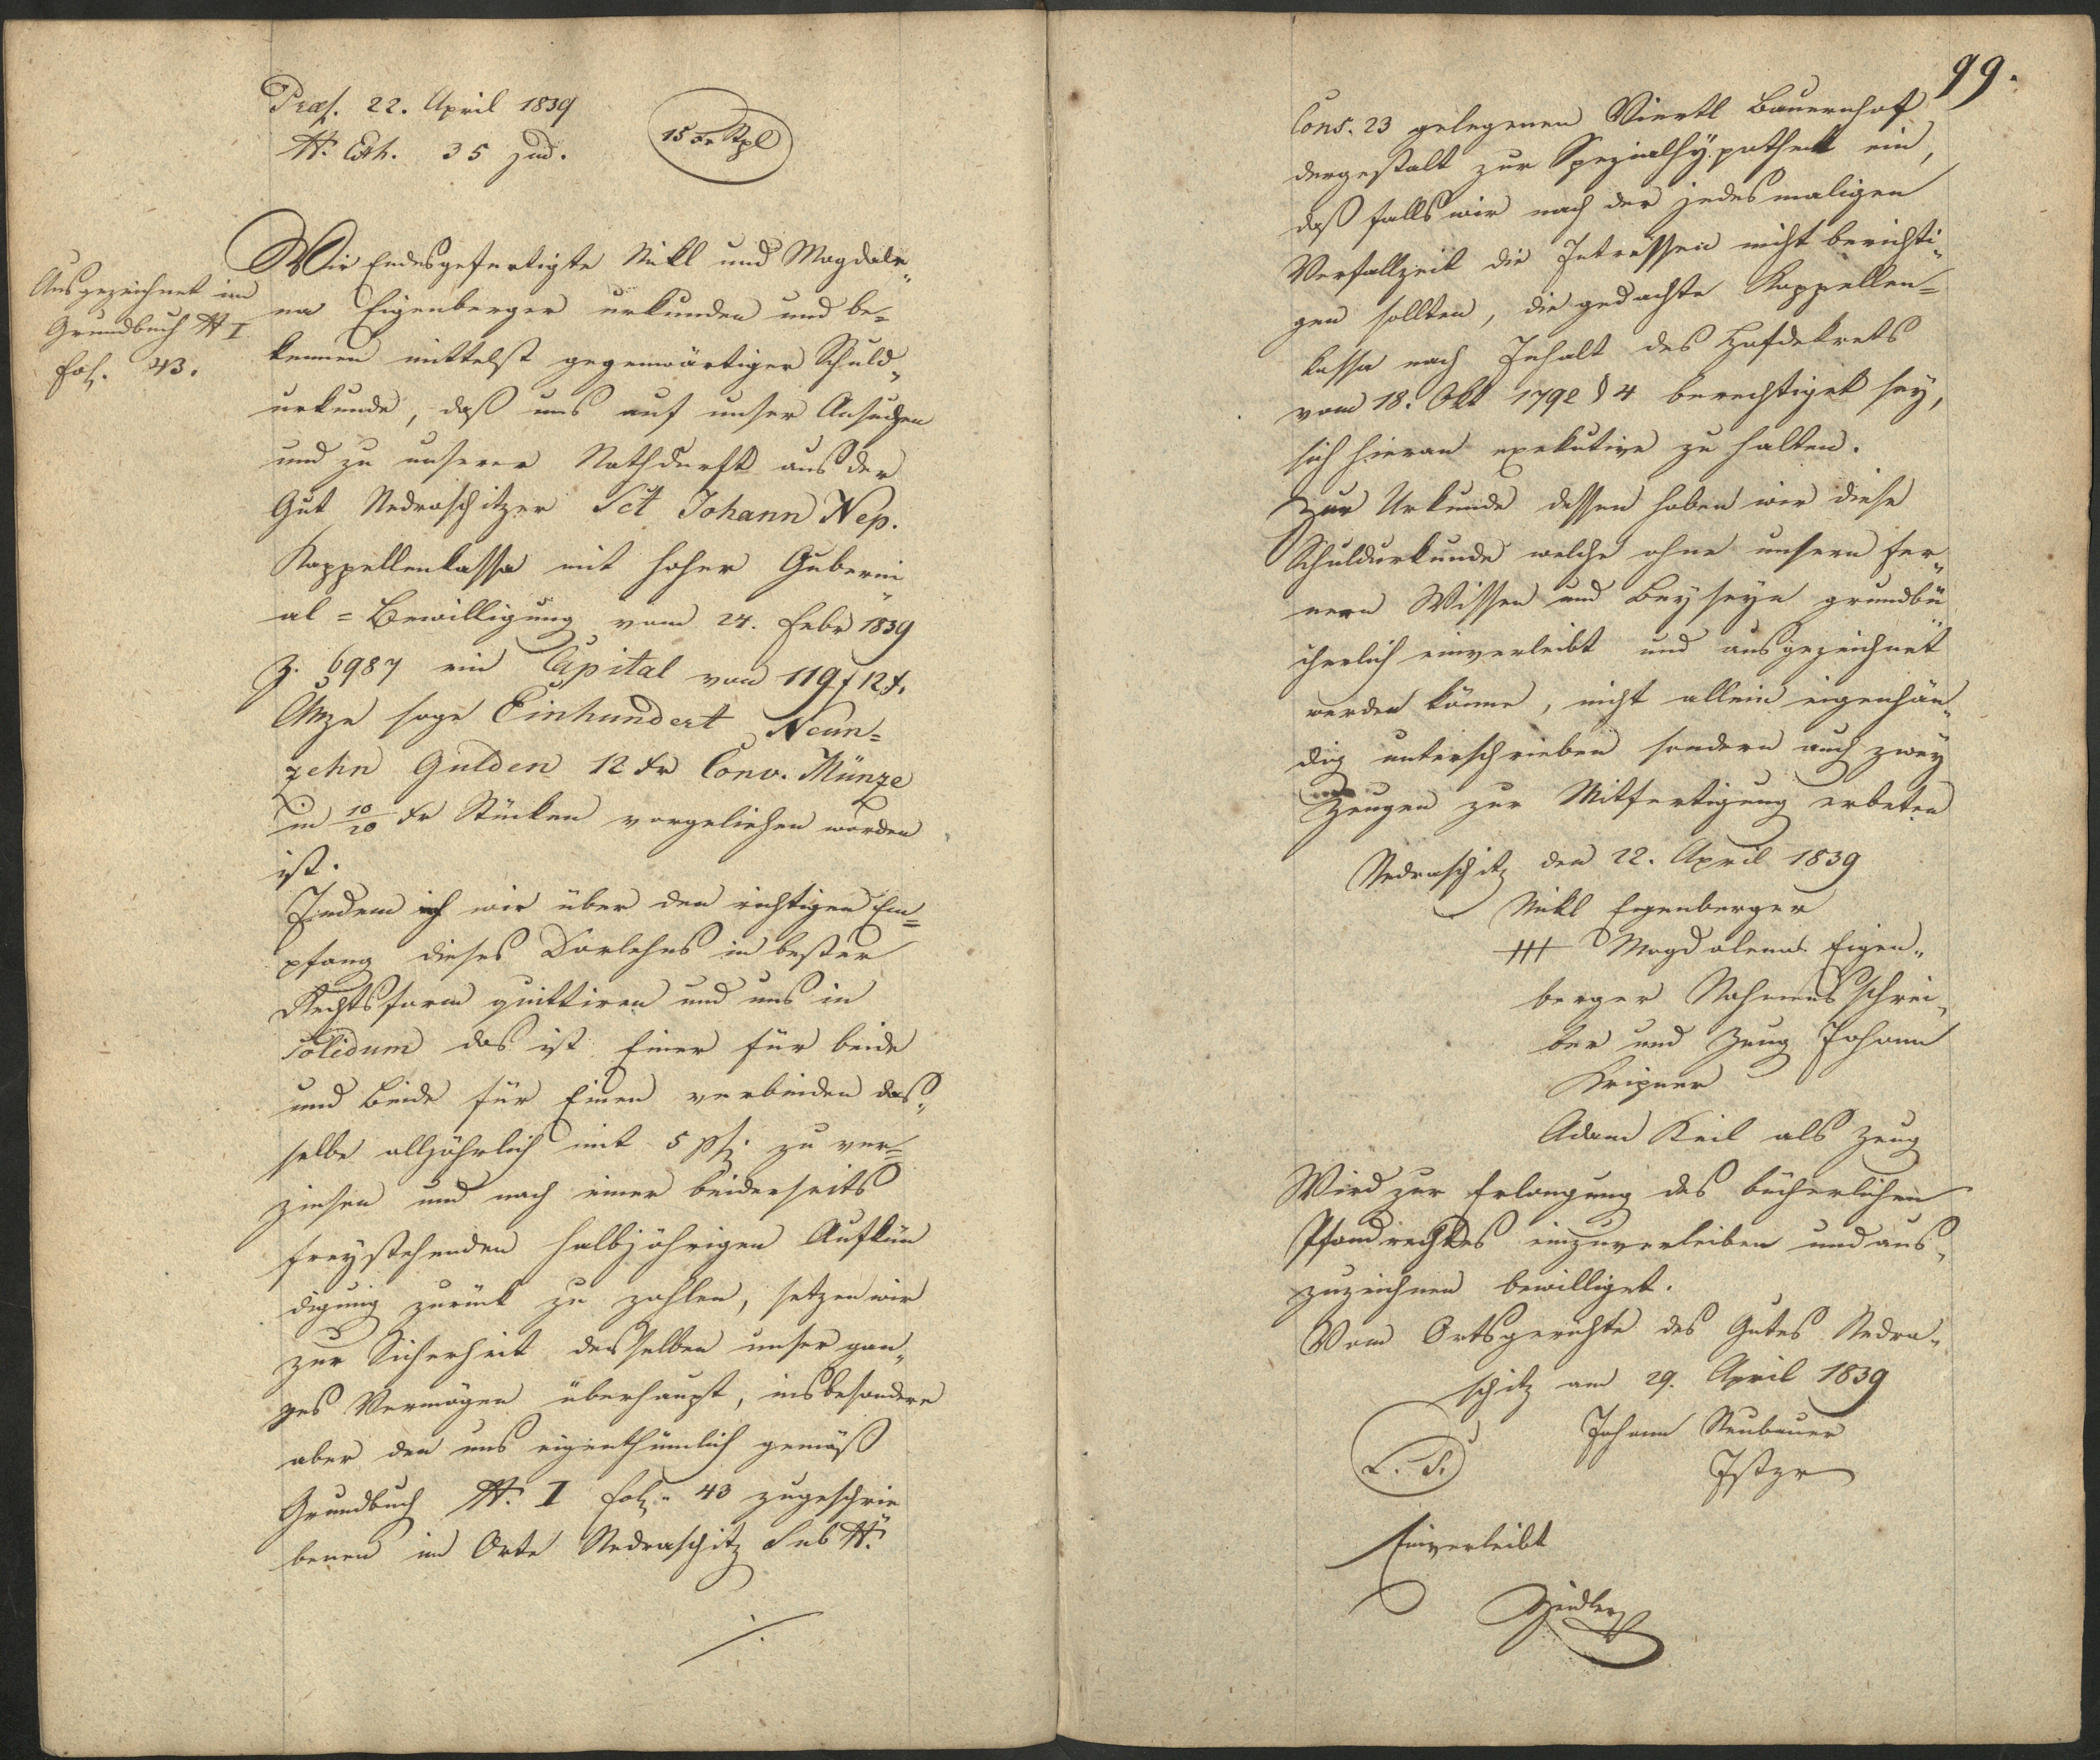 Præs. 22. April 1839
N. Exh. 35 jud.
15 xr Stpl
Ausgezeichnet im
Grundbuch N I
fol. 43.
Wir Endesgefertigte Nikl und Magdale„
na Eigenberger urkunden und be=
kennen mittelst gegenwärtiger Schuld„
urkunde, daß uns auf unser Ansuchen
und zu unserer Nothdurft aus der
Gut Nedraschitzer Sct Johann Nep.
Kappellenkassa mit hoher Guberni„
al = Bewilligung vom 24. Febr 1839
Z. 6987 ein Capital von 119 f 12 x.
CMze sage Einhundert Neun=
zehn Gulden 12 xr Conv. Münze
in 10/20 xr Stücken vorgeliehen worden
ist.
Indem wir über den richtigen Em=
pfang dieses Darlehns in bester
Rechtsform quittiren und uns in
Solidum das ist Einer für beide
und Beide für Einen verbinden das„
selbe alljährlich mit 5 pC. zu ver=
zinsen und nach einer beiderseits
freystehenden halbjährigen Aufkün
digung zurück zu zahlen, setzen wir
zur Sicherheit desselben unser gan„
zes Vermögen überhaupt, insbesondere
aber den uns eigenthümlich gemäß
Grundbuch N. I fol. 43 zugeschrie„
benen im Orte Nedraschitz Sub N.
./.
99.
Cons. 23 gelegenen Viertl Bauernhof
dergestalt zur Spezialhÿpothek ein,
daß falls wir nach der jedesmaligen
Verfallzeit die Intressen nicht berichti„
gen sollten, die gedachte Kappellen=
kassa nach Inhalt des Hofdekrets
vom 18. Okt 1792 § 4 berechtiget sey,
sich hieran exekutive zu halten.
Zur Urkunde dessen haben wir diese
Schuldurkunde welche ohne unsern fer„
nern Wissen und Beyseyn grundbü„
cherlich einverleibt und ausgezeichnet
werden könne, nicht allein eigenhän„
dig unterschrieben sondern auch zwey
Zeugen zur Mitfertigung erbeten
Nedraschitz den 22. April 1839
Nikl Eigenberger
+++ Magdalena Eigen„
berger Nahmensschrei„
ber und Zeug Johann
Kripner
Adam Keil als Zeug
Wird zur Erlangung des bücherlichen
Pfandrechtes einzuverleiben und aus„
zuzeichnen bewilliget.
Vom Ortsgerichte des Gutes Nedra„
schitz am 29. April 1839
L. S.
Johann Neubauer
Jstzr
Einverleibt